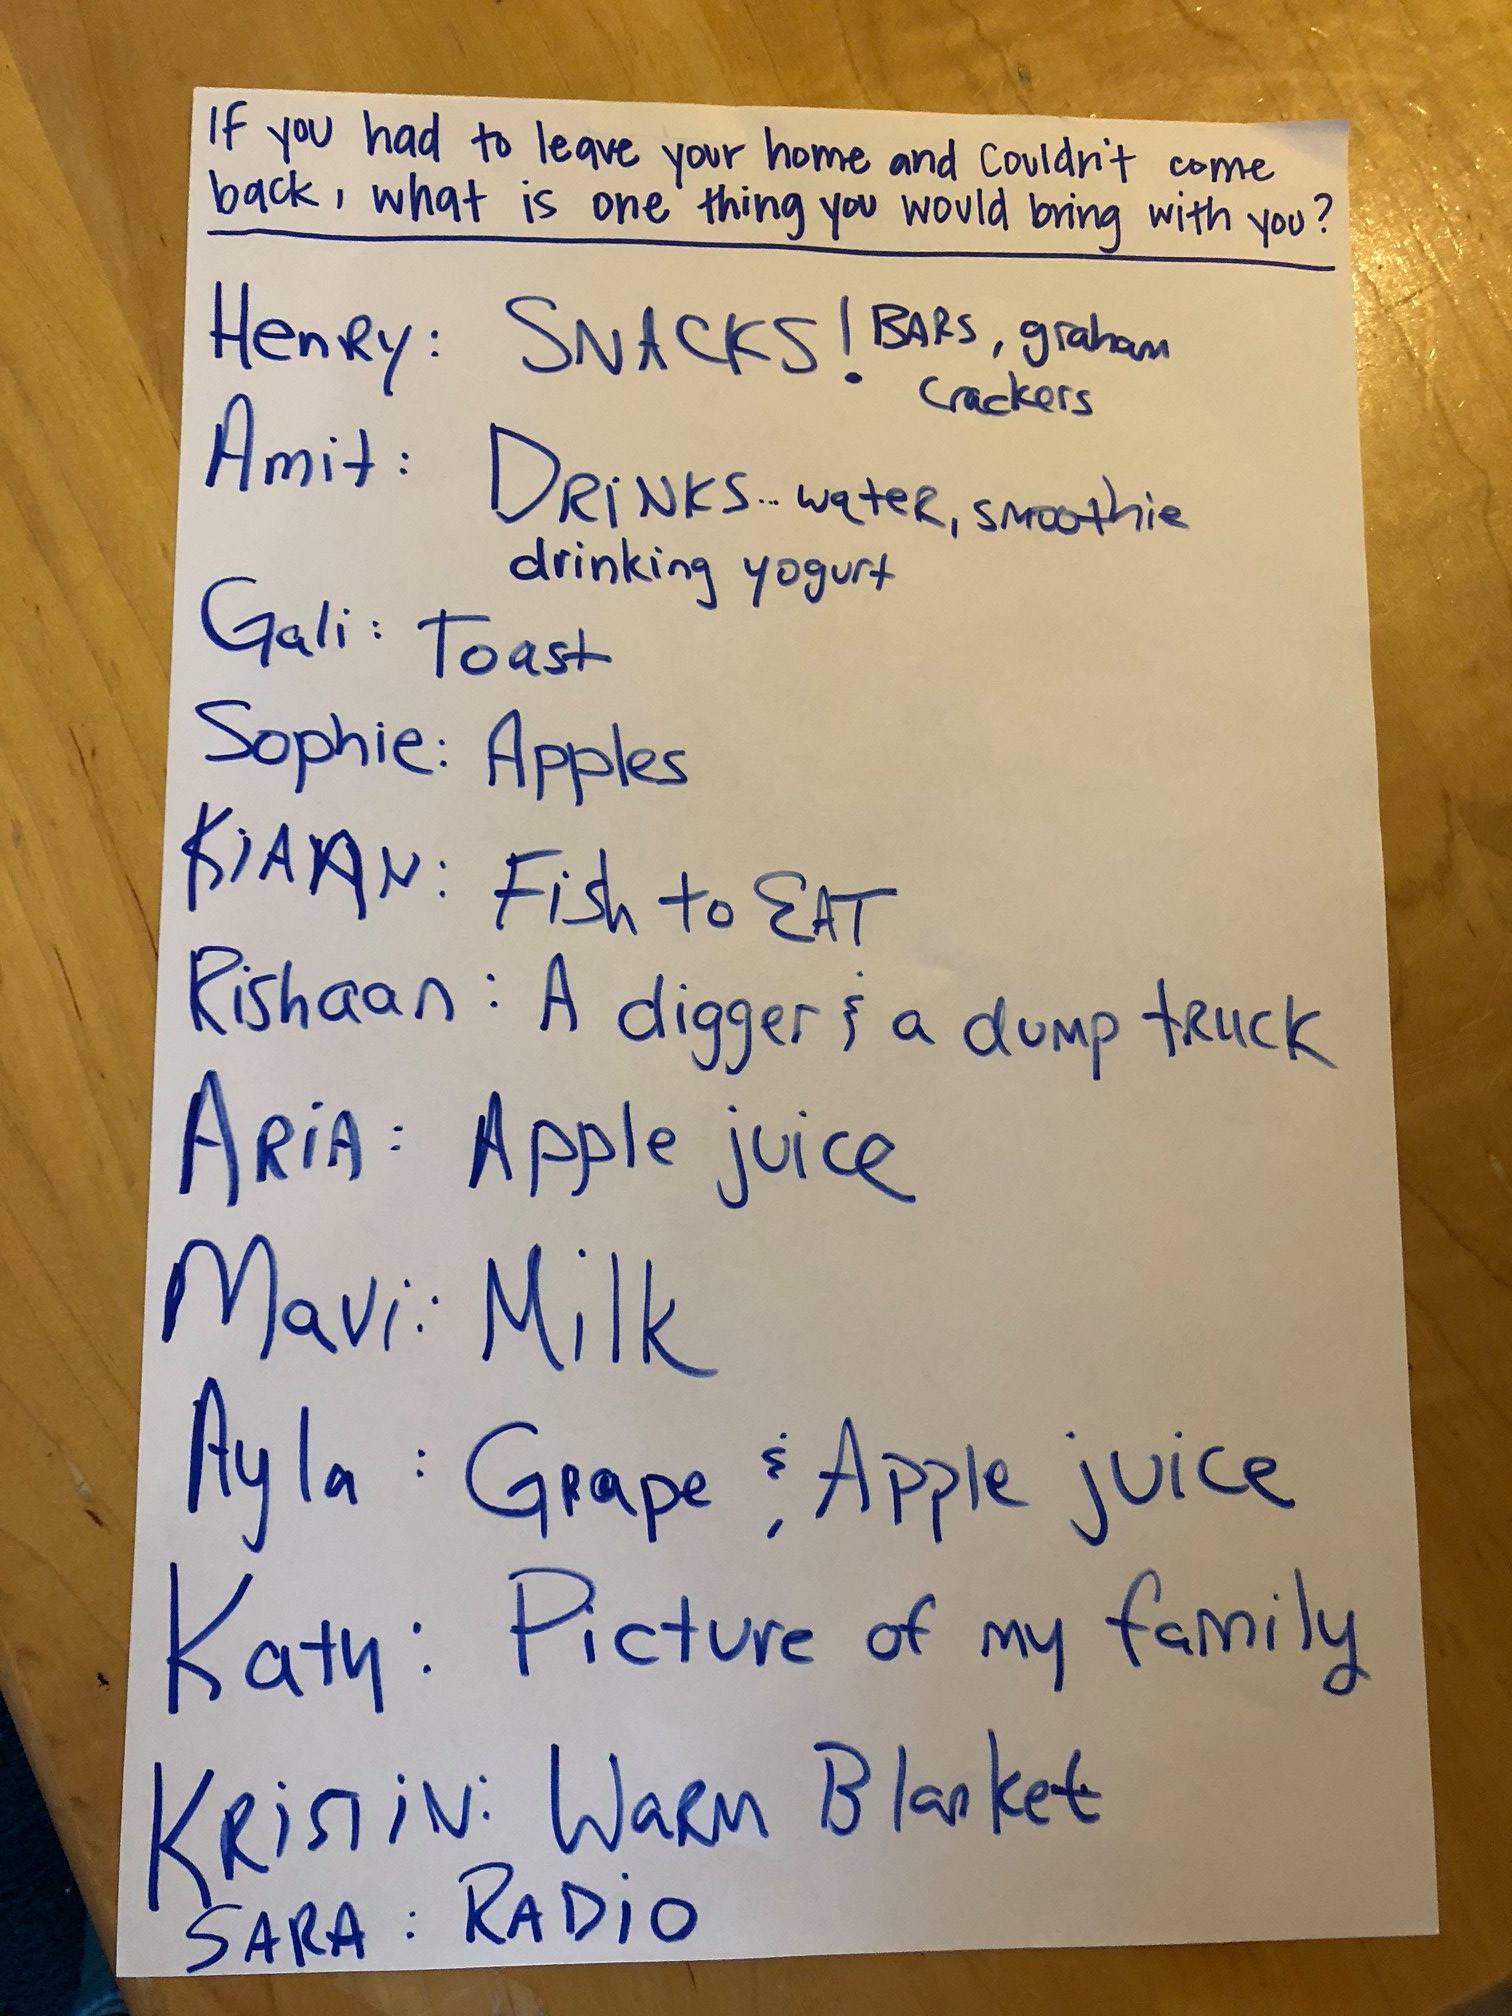 If you had to leave your home and couldn't come
back, what is one thing you would bring with you?
Henry: SNACKS! BARS, graham
crackers
Amit: DRiNKS... water, smoothie
drinking yogurt
Gali: Toast
Sophie: Apples
KiAAN: Fish to EAT
Rishaan: A digger & a dump truck
ARiA: Apple juice
Mavi: Milk
Ayla: Grape & Apple juice
Katy: Picture of my family
KRiSTiN: Warm Blanket
SARA: RADiO